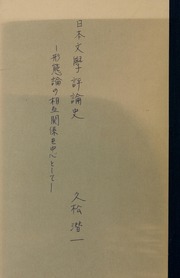 日本文學評論史
―形態論の相互関係を中心として―
久松潜一